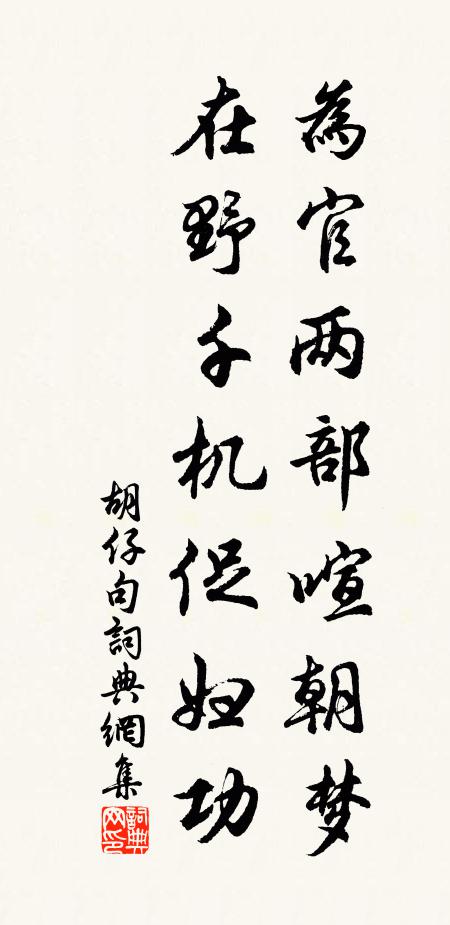 為官两部喧朝梦
在野千机促妇功
胡仔句詞典網集
詞典网印